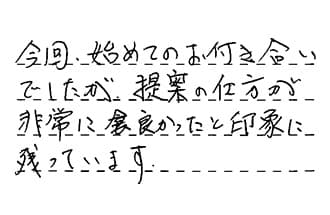 今回、始めてのお付き合い
でしたが、提案の仕方が
非常に良かったと印象に
残っています。